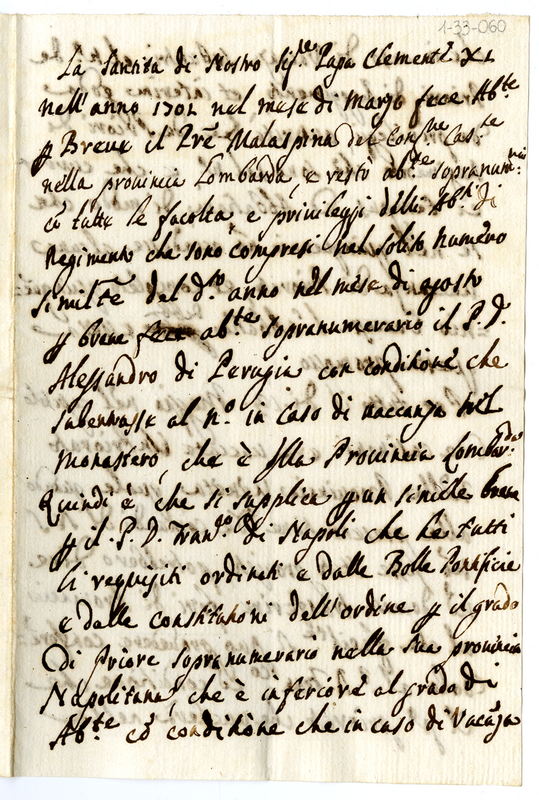 1-33-060
La Santita di Nostro Sig.re Papa Clemente XI
nell'anno 1701 nel mese di Marzo fece Ab.te
p Breve il Pre Malaspina del Cas.te
nella provincia Lombarda, e restò ab.te sopranum.rio
cō tutte le facolta e privileggi delli Ab.ti di
Regimento che sono compresi nel solito numero
similte del d.to anno nel mese di agosto
p breve fece ab.te sopranumerario il P. D.
Alessandro di Perugia con conditione che
subentrasse al n.o in caso di vaccanza nel
Monastero, che è nella Provincia Lombar.da
Quindi è che si supplica p un simille breve
p il P. D. Fran.co di Napoli che hà tutti
li requisiti ordinati e dalle Bolle Pontificie
e dalle constitutioni dell'ordine p il grado
Di Priore sopranumerario nella sua provincia
Napolitana, che è inferiore al grado di
Ab.te cō conditione che in caso di vacāza